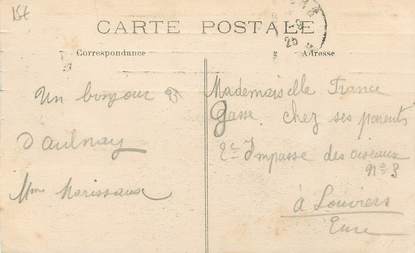 15€
CARTE POSTALE
Correspondance
Adresse
Un bonjour
d'aulnay
Mme Morissaux
Mademoiselle France
chez ses parents
2e Impasse des oiseaux
n° 3
à Louviers
Eure